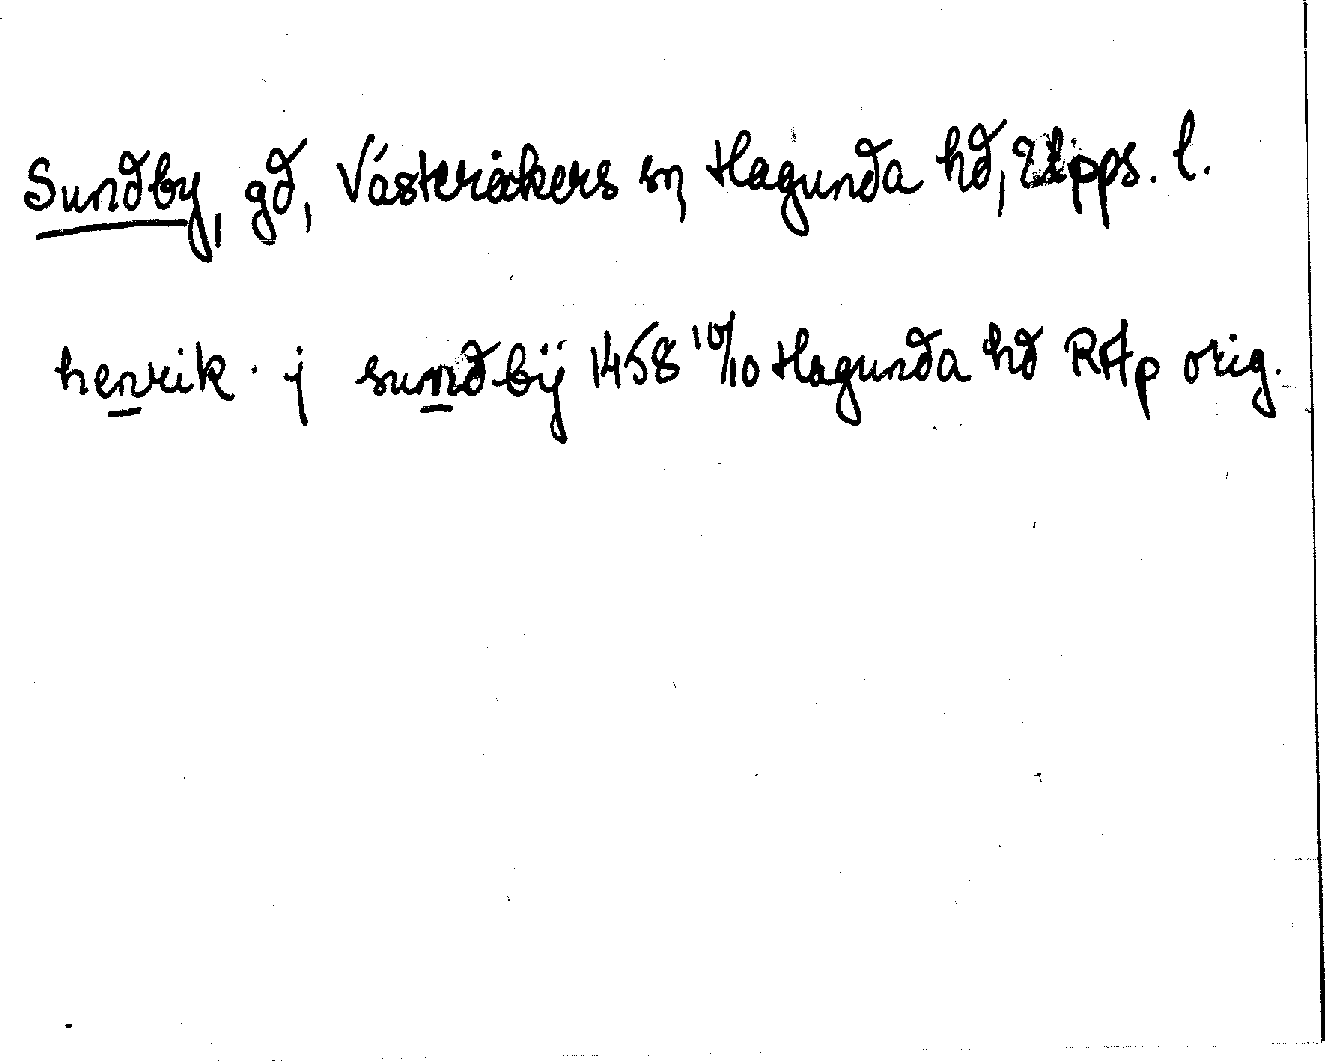 Sundby, gd, Västeråkers sn Hagunda hd, Upps. l.
henrik · j sundbÿ 1458 10/10 Hagunda hd RAp orig.